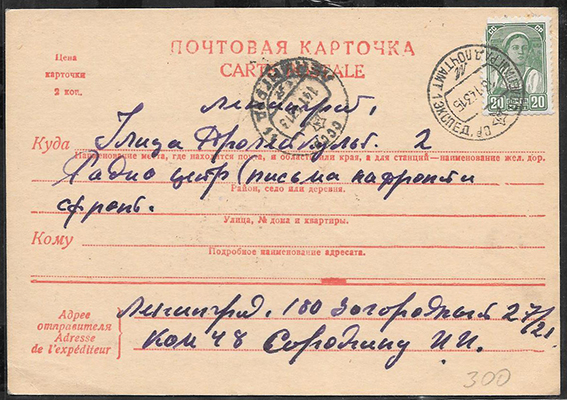 ПОЧТОВАЯ КАРТОЧКА
CARTE POSTALE
Цена
карточки
2 коп.
20 20
Ленинград,
Куда Улица Пролеткульт. 2
Наименование места, где находится почта, и области или края, а для станций—наименование жел. дор.
Радио центр (письма на фронт и
Район, село или деревня.
с фронт.
Улица, № дома и квартиры.
Кому
Подробное наименование адресата.
Адрес
отправителя
Adresse
de l'expéditeur
Ленинград. 180 Загородный 27/21.
Ком 48 Сорокину И. И.
300